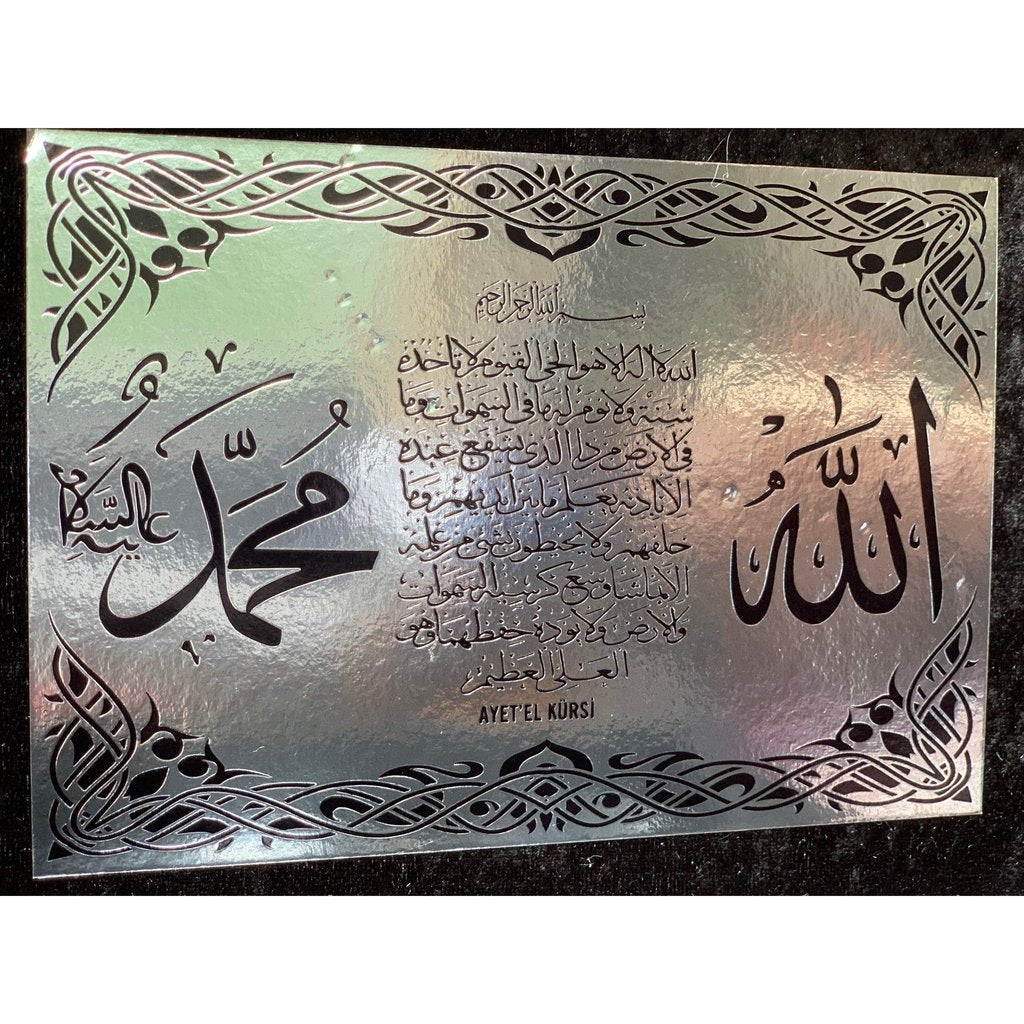 اللهُ
بسم الله الرحمن الرحيم
الله لا اله الا هو الحى القيوم لا تأخذه
سنة ولا نوم له ما فى السموات وما
فى الارض من ذا الذى يشفع عنده
الا باذنه يعلم ما بين ايديهم وما
خلفهم ولا يحيطون بشئ من علمه
الا بما شا وسع كرسيه السموات
والارض ولا يوده حفظهما وهو
العلى العظيم
AYET'EL KÜRSİ
مُحَمَّد
عليه السلام